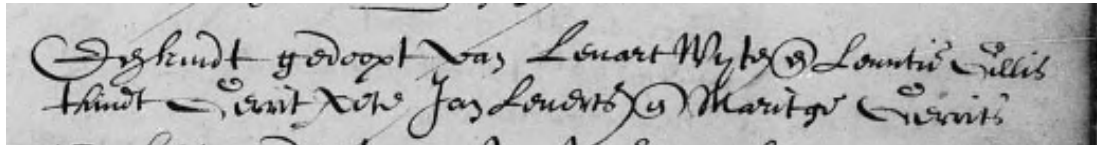 Een kindt gedoopt van Lenart Wyte en Leuntie Gillis
tkindt Gerrit Pete Jan Lenerts en Maritge Gerrits